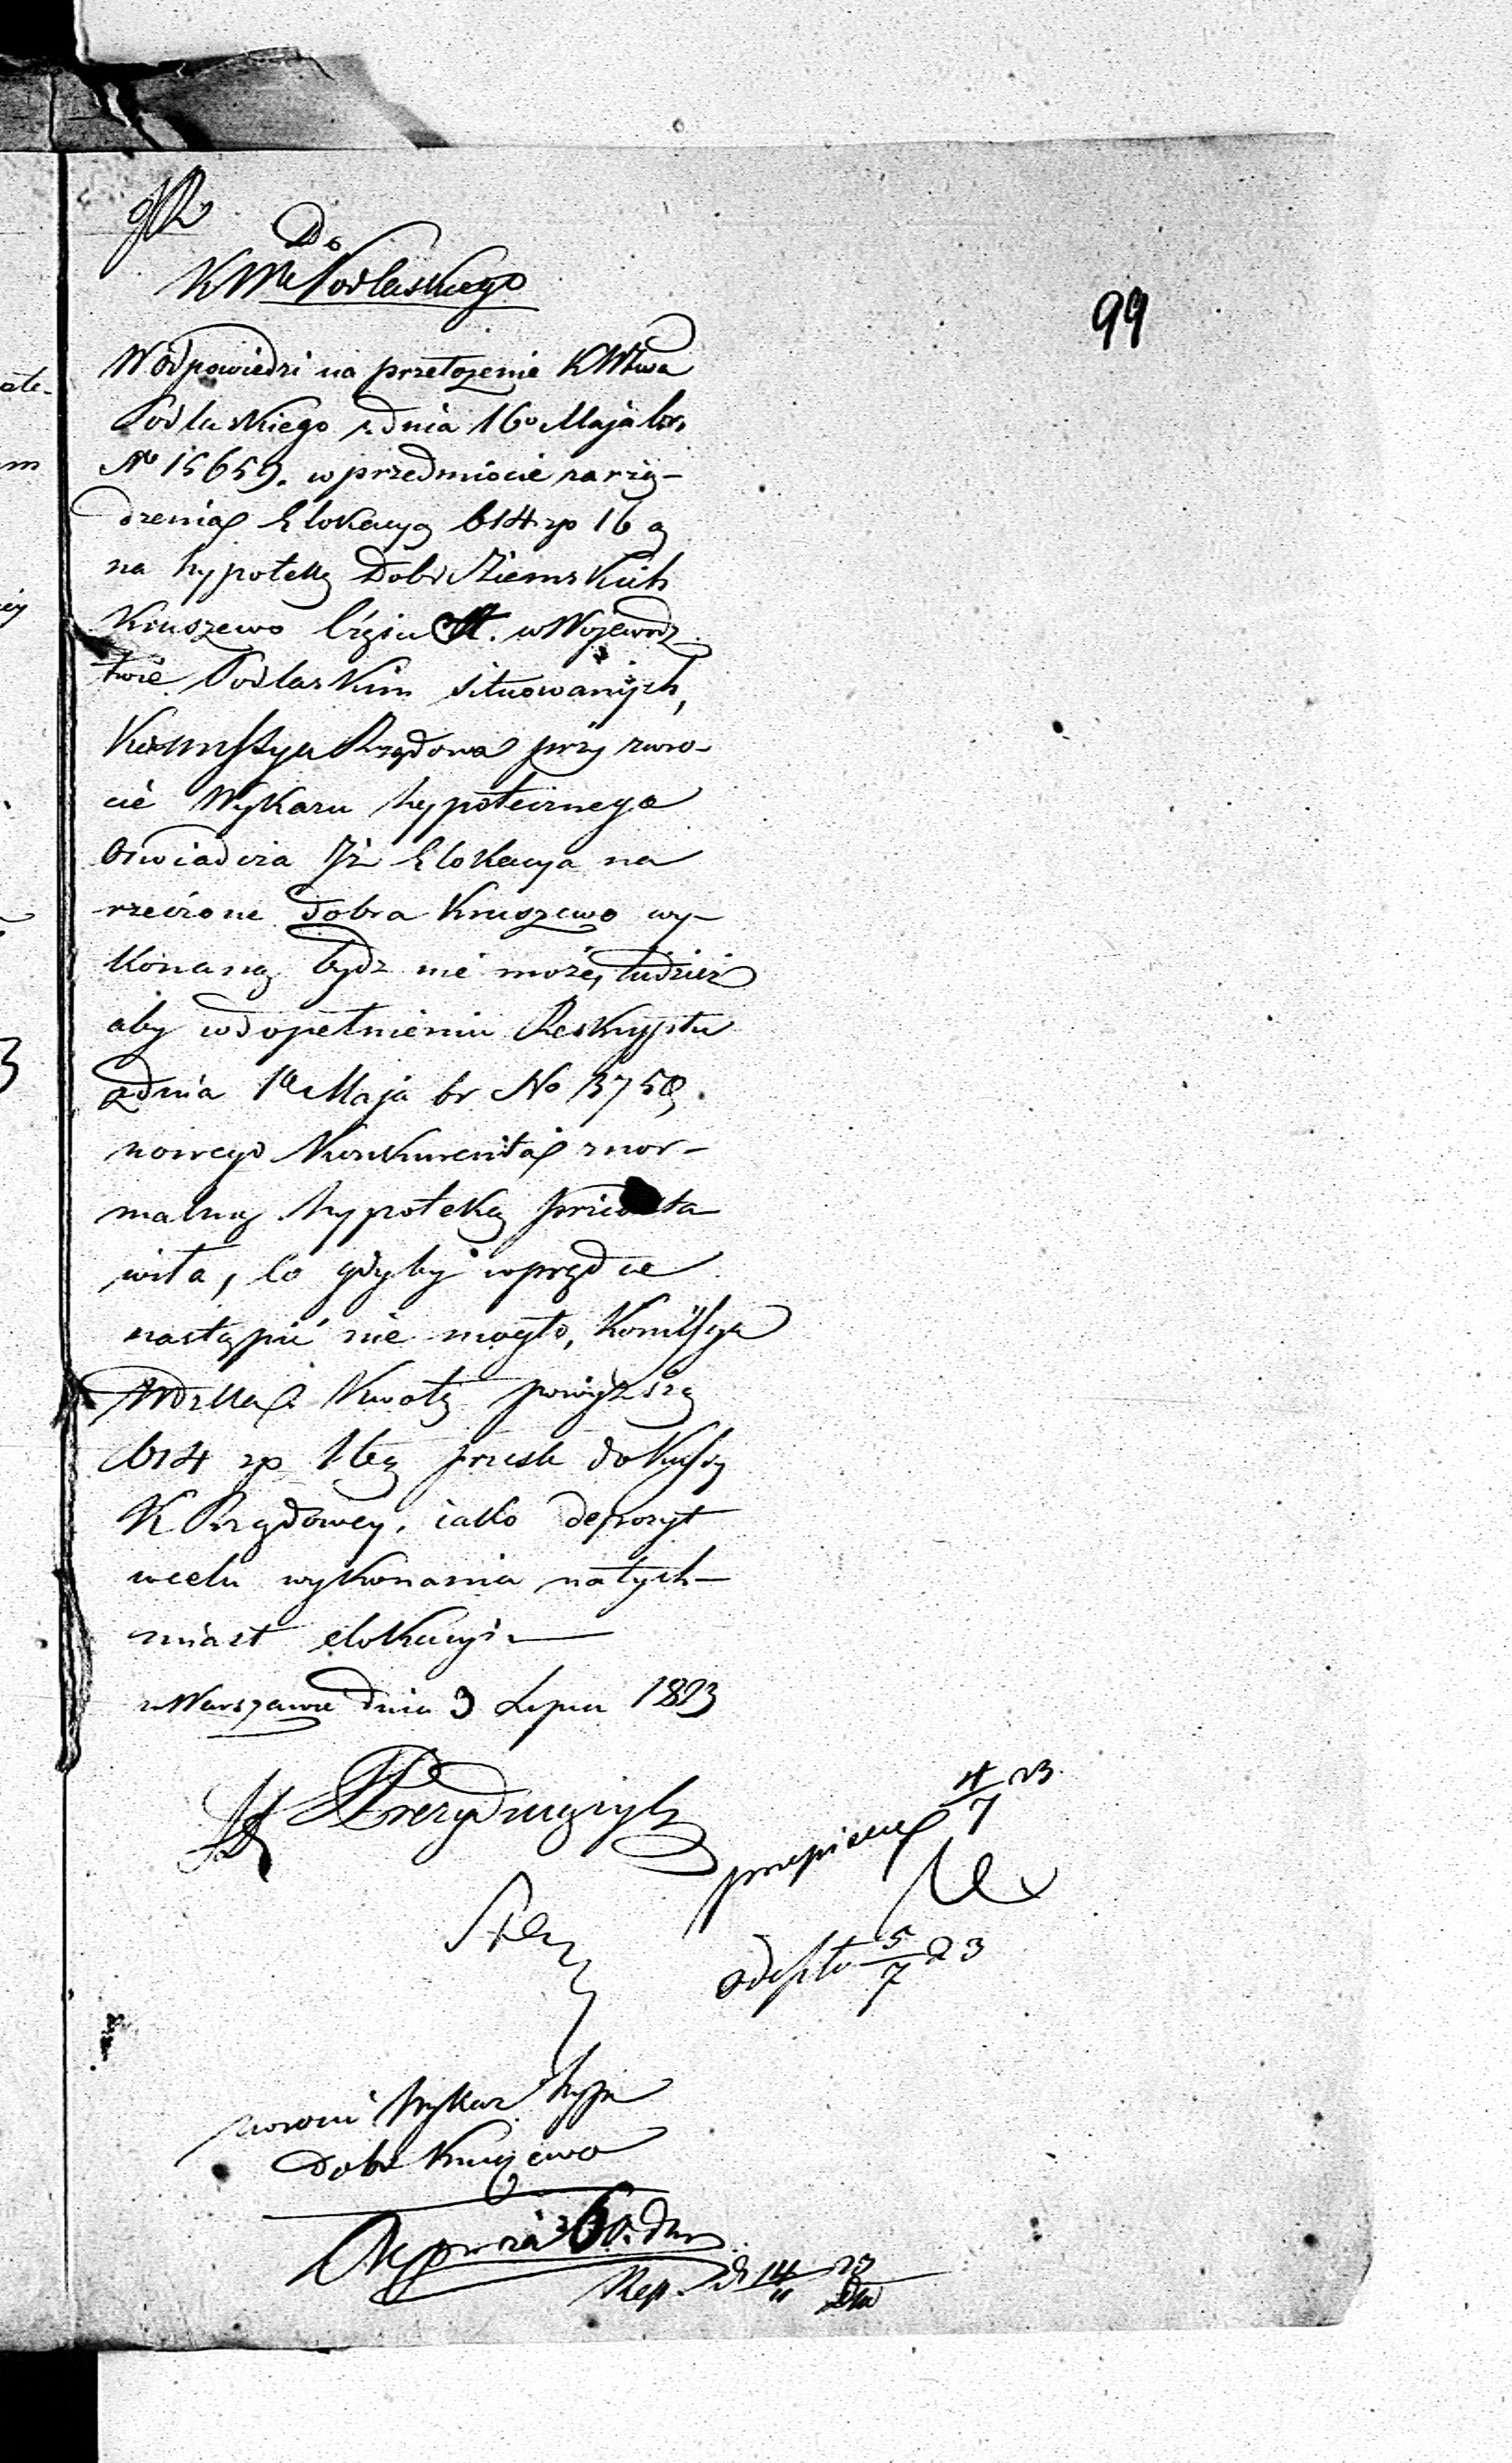 99
Do
KWa Podlaskiego
W odpowiedzi na przełożenie KWtwa
Podlaskiego zdnia 16º Maja br.
Nº 15659. w przedmiocie zarzą-
dzenia Elokacyą 614 zp 16 g
na hypotekę Dobr Ziemskich
Kruszewo w Wojewodz
twie Podlaskim situowanych,
Kommissya Rządowa przy zwro-
cie Wykazu hypotecznego
Oswiadcza Iż Elokacya na
rzeczone dobra Kruszewo wy-
konaną bydz nie może, tudzież
aby w dopełnieniu Reskryptu
zdnia 1º Maja br No 13750
nowego Konkurenta z nor-
malną hypoteką przedsta
wiła, co gdyby wprędce
nastąpić nie mogło, Kommissya
Wdzka kwotę powyższą
614 zp 16 g prześle do Kassy
K Rządowey, iako depozyt
w celu wykonania natych-
miast elokacyi
w Warszawie dnia 3 Lipca 1823
Prezydujący
przepisano 4/7 23
odeszło 5/7 23
zwrócić Wykaz hypo
Dobr Kruszewo
Rep. d 14 23